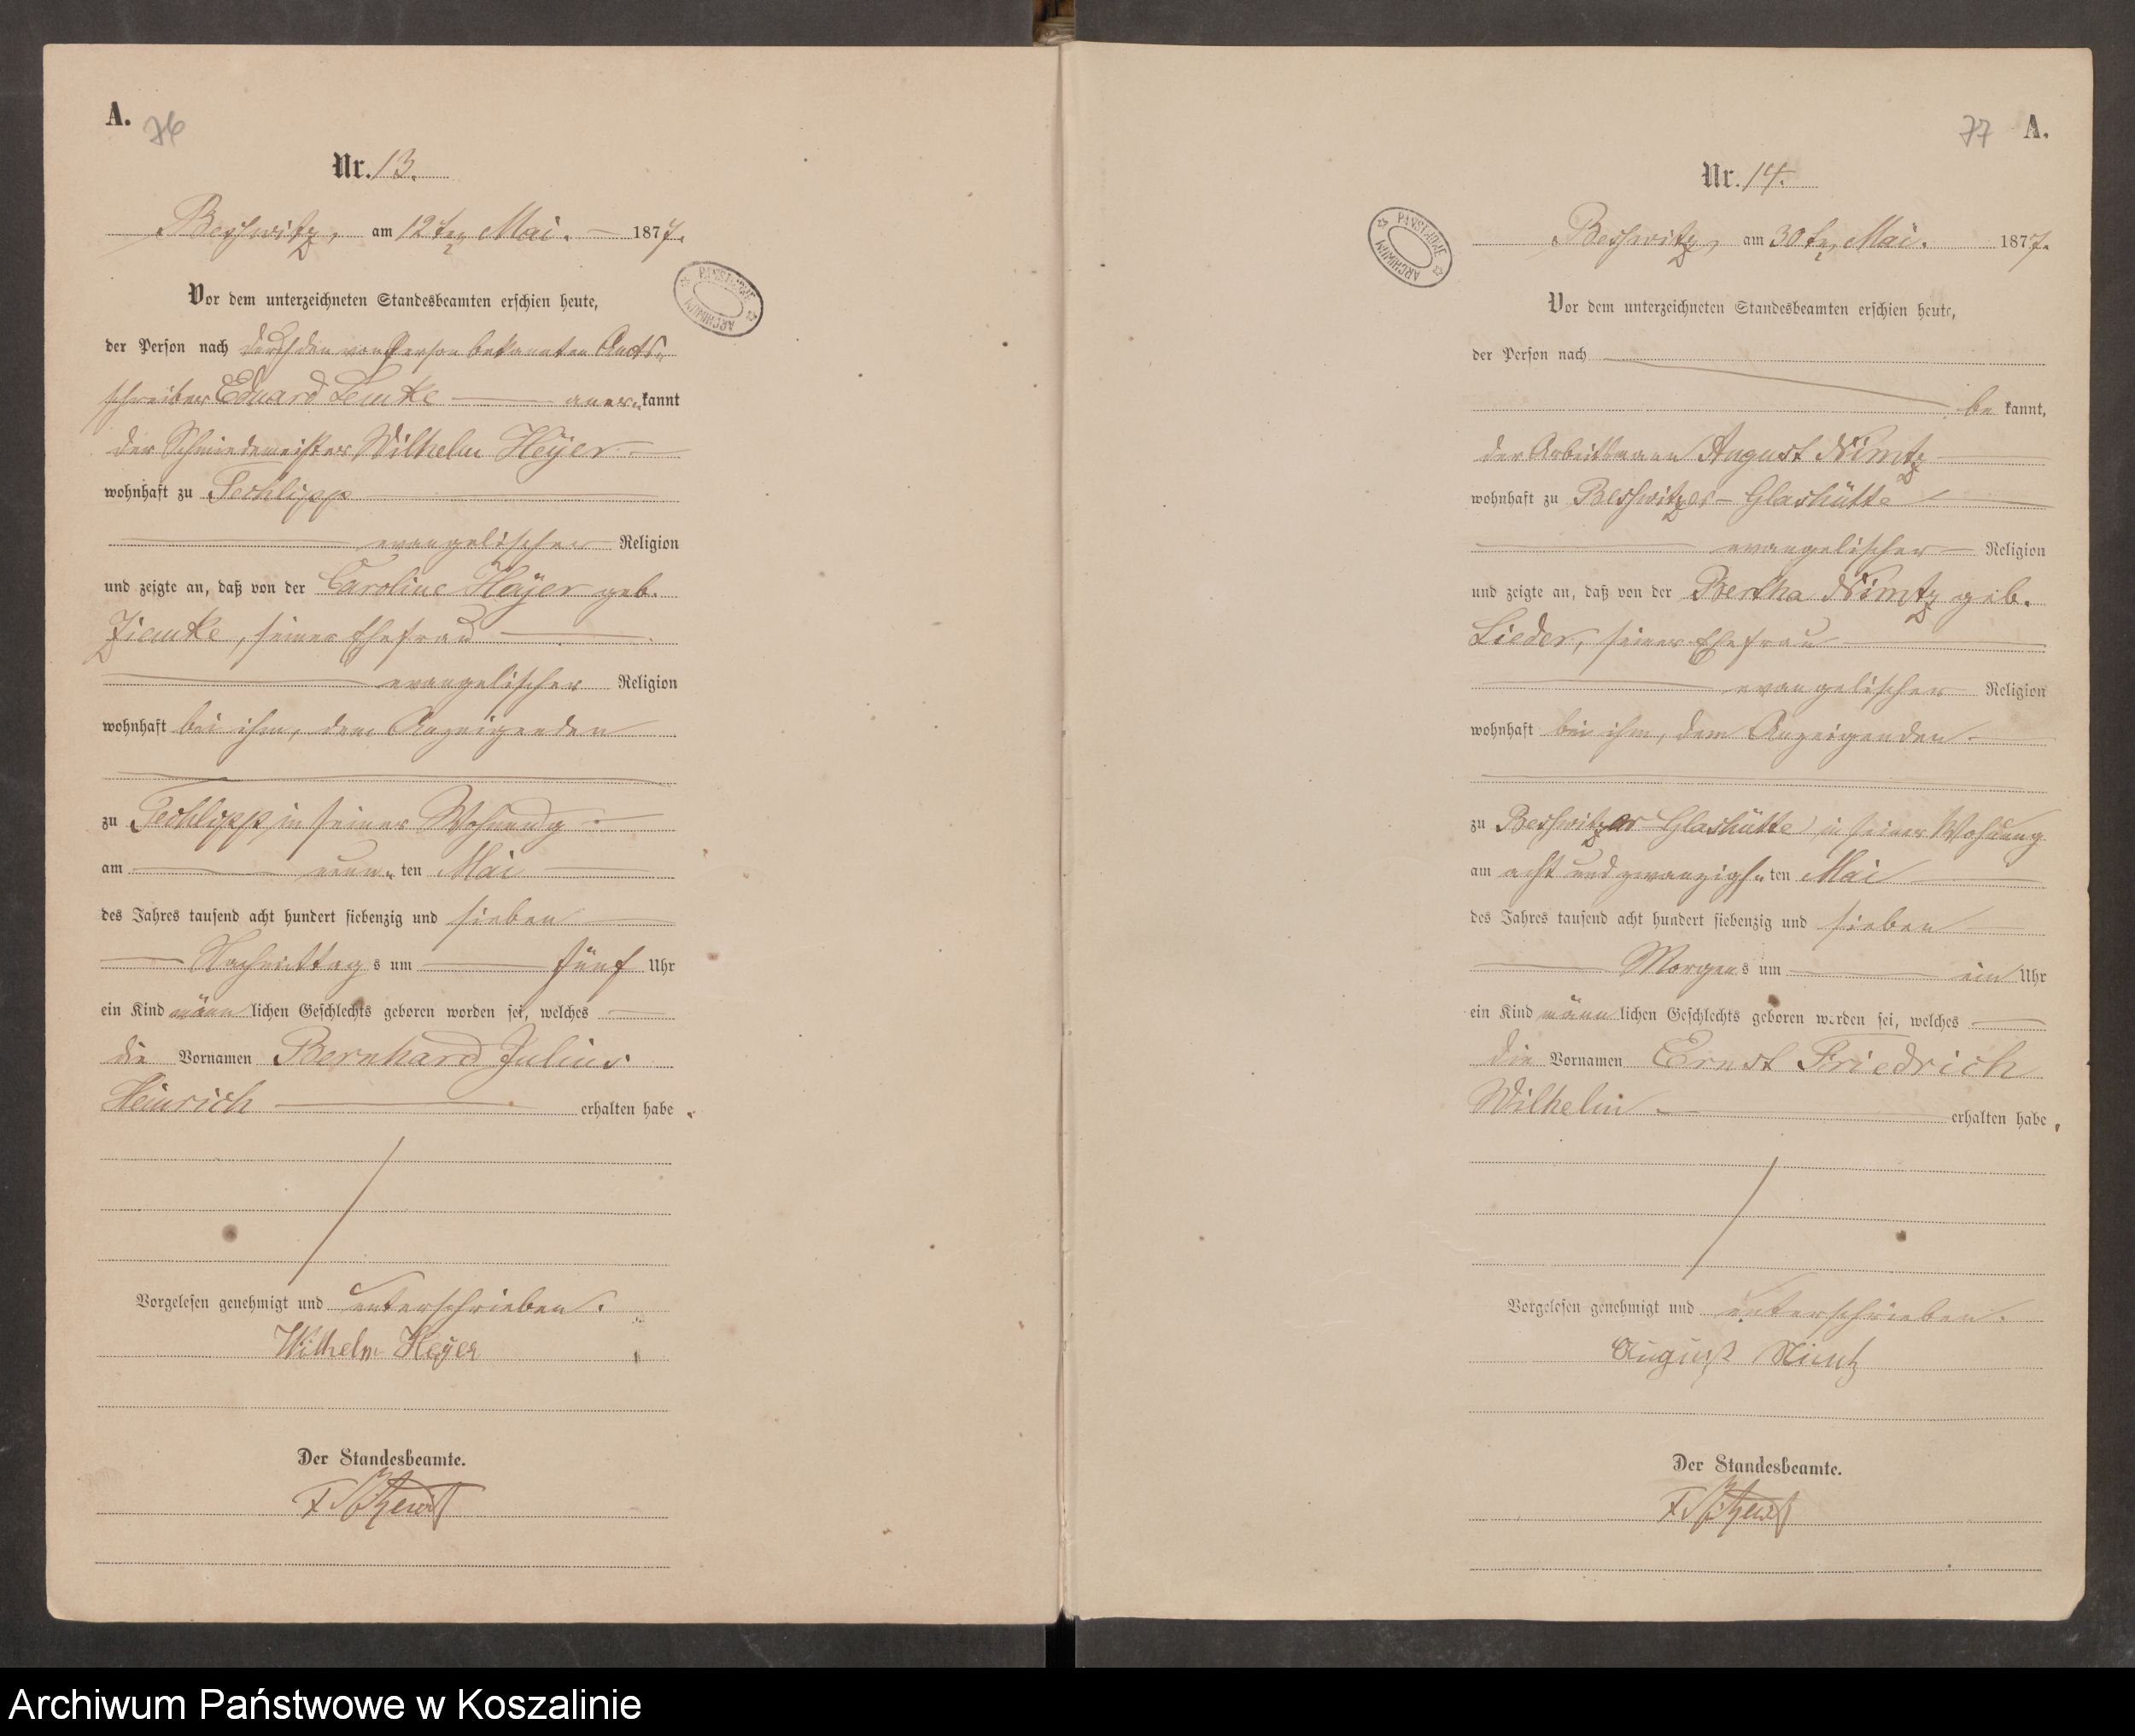 A.
76
Nr. 13.
Beßwitz, am 12ten Mai. 1877.
PAŃSTWOWE ARCHIWUM
Vor dem unterzeichneten Standesbeamten erschien heute,
der Person nach durch den von Person bekannten Amts-
schreiber Eduard Lemke aner-kannt
der Schmiedemeister Wilhelm Heyer
wohnhaft zu Techlipp
evangelischer Religion
und zeigte an, daß von der Caroline Heyer geb.
Ziemke, seiner Ehefrau
evangelischer Religion
wohnhaft bei ihm, dem Anzeigenden
zu Techlipp in seiner Wohnung
am neun-ten Mai
des Jahres tausend acht hundert siebenzig und sieben
Nachmittags um fünf Uhr
ein Kind männlichen Geschlechts geboren worden sei, welches
die Vornamen Bernhard Julius
Heinrich erhalten habe.
Vorgelesen genehmigt und unterschrieben.
Wilhelm Heyer
Der Standesbeamte.
77
A.
Nr. 14.
Beßwitz, am 30ten Mai. 1877.
PAŃSTWOWE ARCHIWUM
Vor dem unterzeichneten Standesbeamten erschien heute,
der Person nach
be kannt,
der Arbeitsmann August Nimtz
wohnhaft zu Beßwitzer-Glashütte
evangelischer Religion
und zeigte an, daß von der Bertha Nimtz geb.
Lieder, seiner Ehefrau
evangelischer Religion
wohnhaft bei ihm, dem Anzeigenden
zu Beßwitzer Glashütte in seiner Wohnung
am acht und zwanzigs-ten Mai
des Jahres tausend acht hundert siebenzig und sieben
Morgens um ein Uhr
ein Kind männlichen Geschlechts geboren worden sei, welches
die Vornamen Ernst Friedrich
Wilhelm erhalten habe.
Vorgelesen genehmigt und unterschrieben.
August Nimtz
Der Standesbeamte.
Archiwum Państwowe w Koszalinie